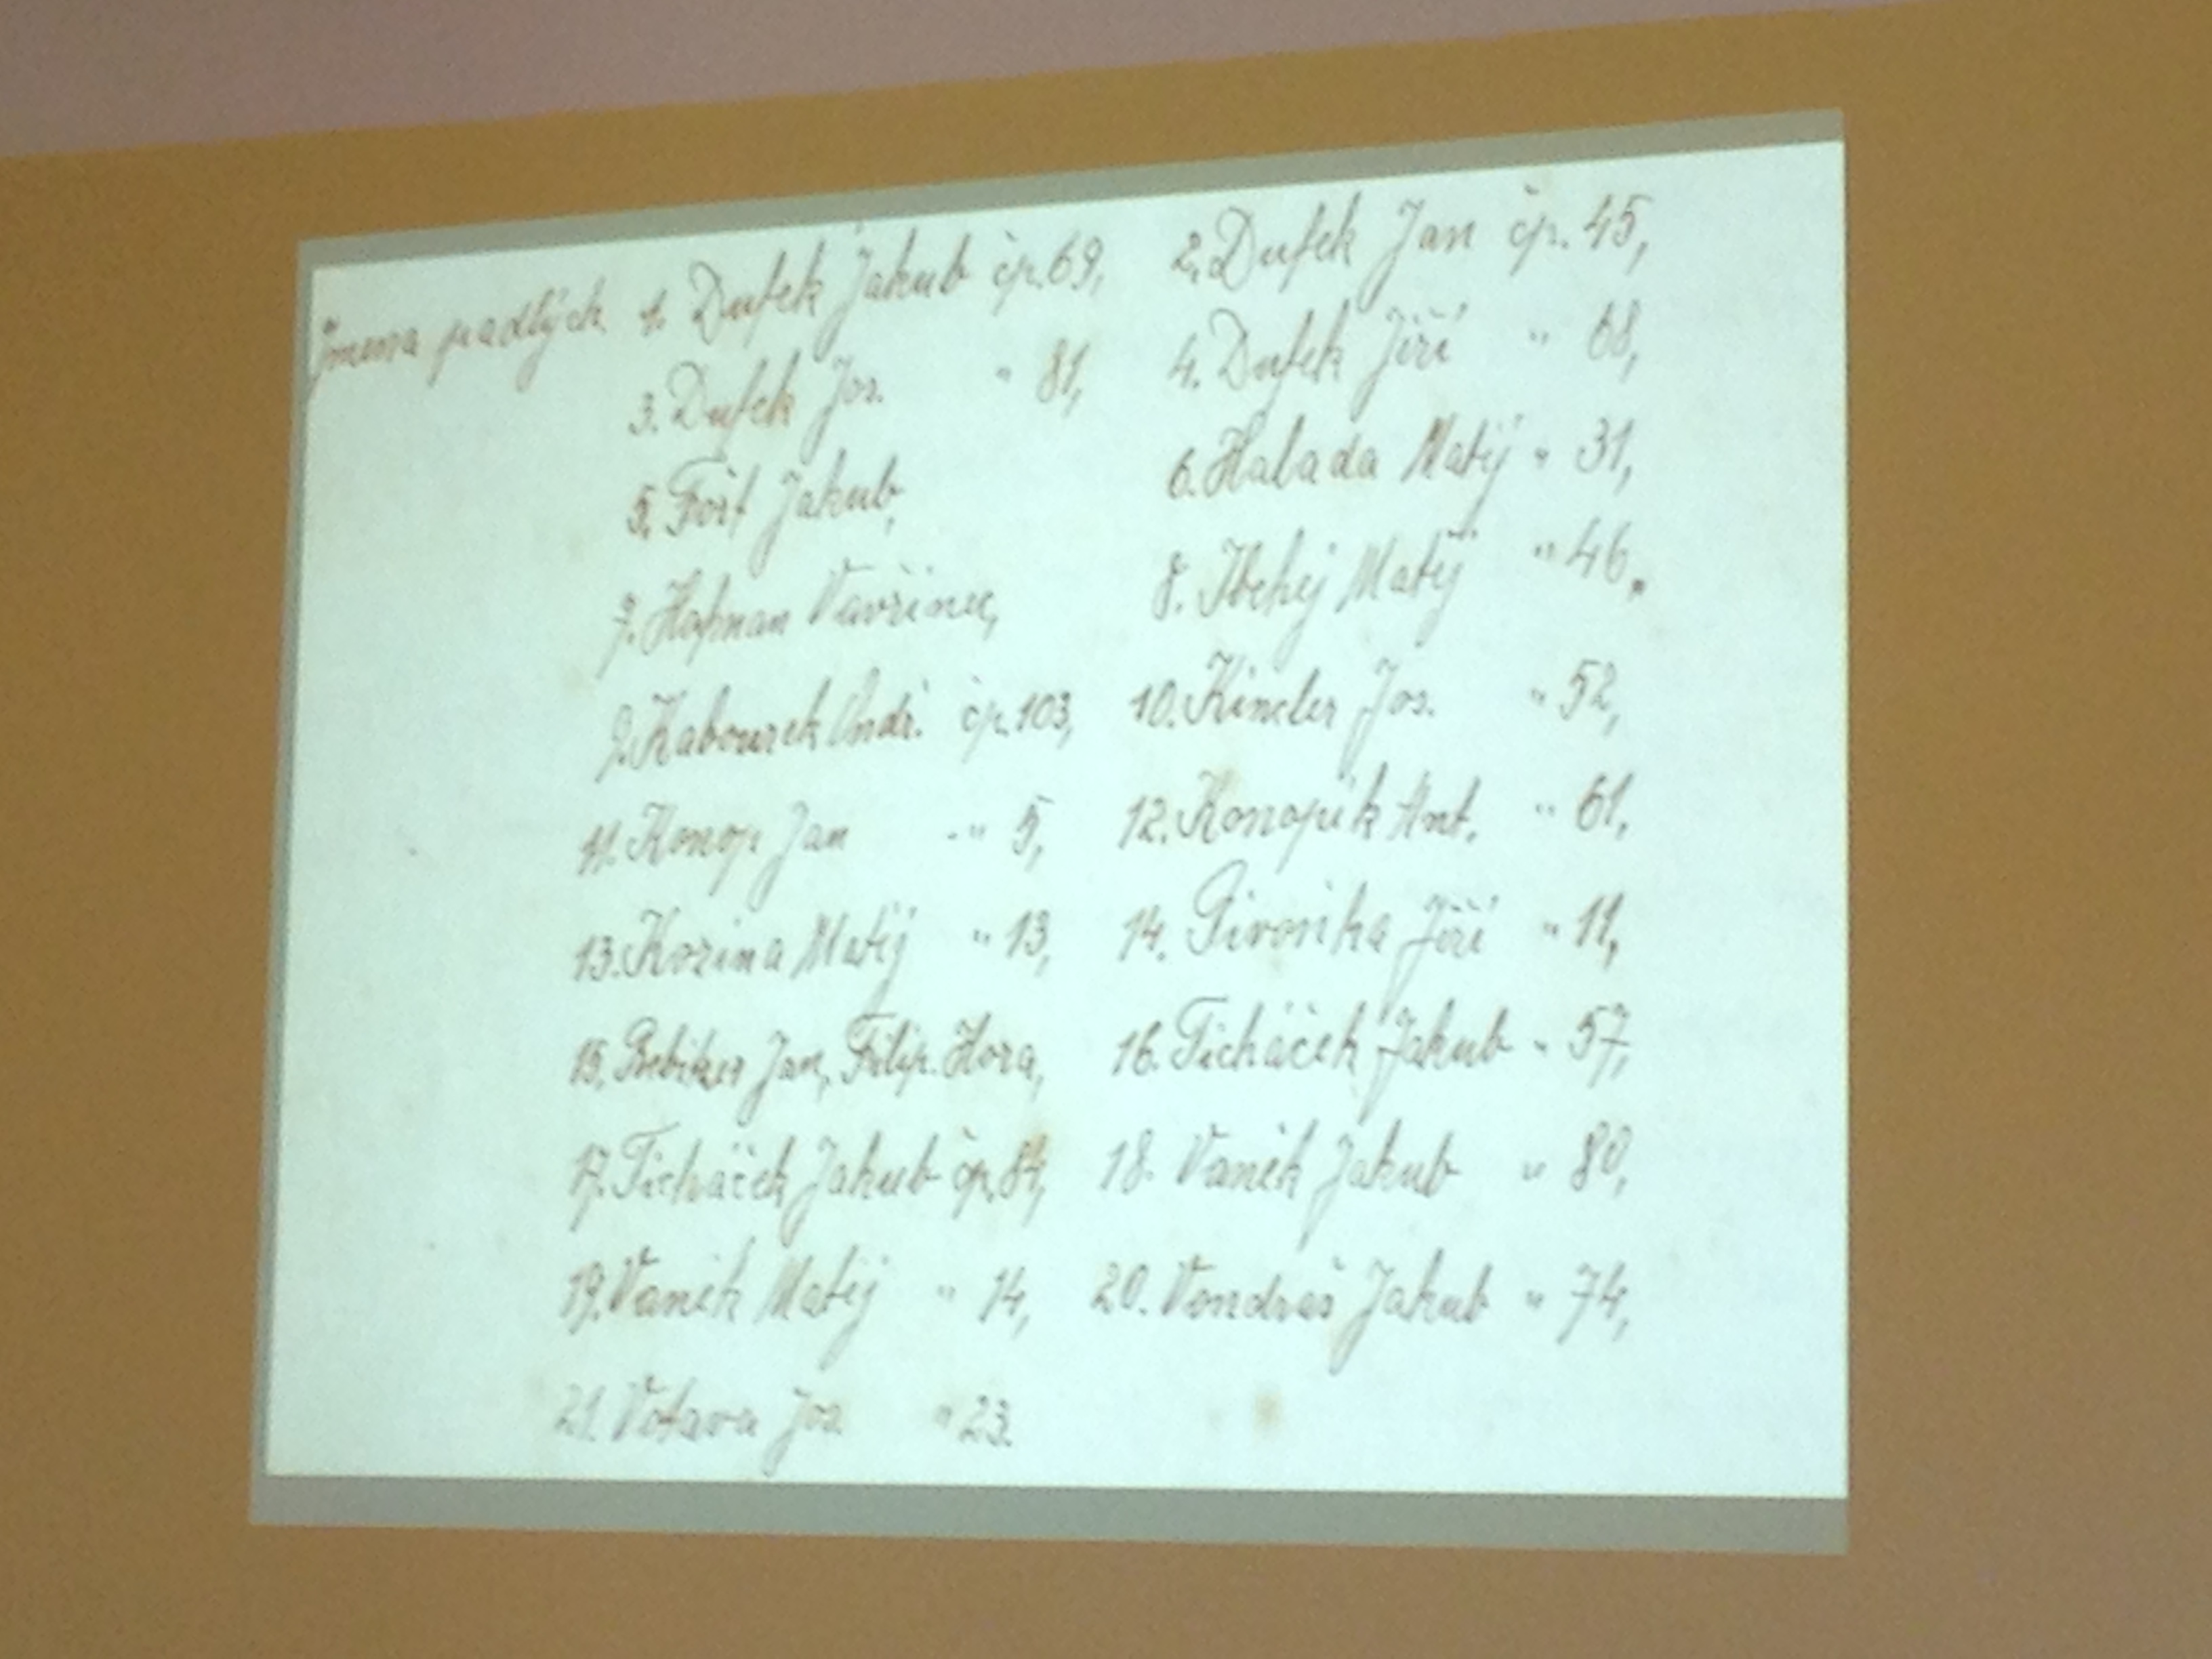 Jména padlých 1. Dufek Jakub čp. 69, 2. Dufek Jan čp. 45,
3. Dufek Jos. " 81, 4. Dufek Jiří " 68,
5. Fošt Jakub, 6. Halada Matěj " 31,
7. Hofman Vavřinec, 8. Matěj " 46.
9. Kabourek Ondř. čp. 103, 10. Kindler Jos. " 52,
11. Konop Jan " 5, 12. Konopík Ant. " 61,
13. Kozina Matěj " 13, 14. Pivoňka Jiří " 11,
15. Jan, Filip. Hora, 16. Ticháček Jakub " 57,
17. Ticháček Jakub čp. 84, 18. Vaněk Jakub " 80,
19. Vaněk Matěj " 14, 20. Vondraš Jakub " 74,
21. Votava Jos. " 23.